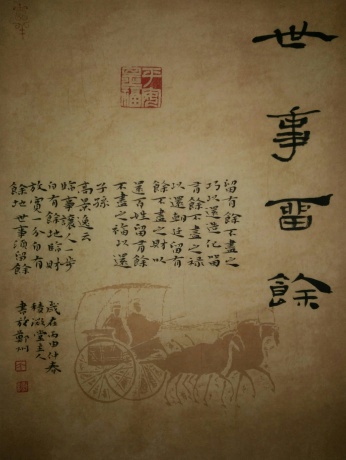 世事畱餘
平安是福
留有餘不盡之
巧以還造化留
有餘不盡之禄
以還朝廷留有
餘不盡之財以
還百姓留有餘
不盡之福以還
子孫
高景逸云
臨事讓人一步
自有餘地臨財
放寬一分自有
餘地世事須留餘
歲在丙申仲春
堂主人
書於鄭州